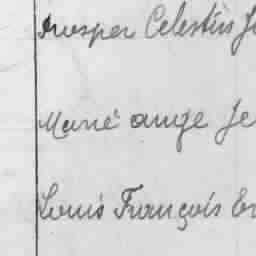 Prosper Celestin J
Marie ange Je
Louis François Er